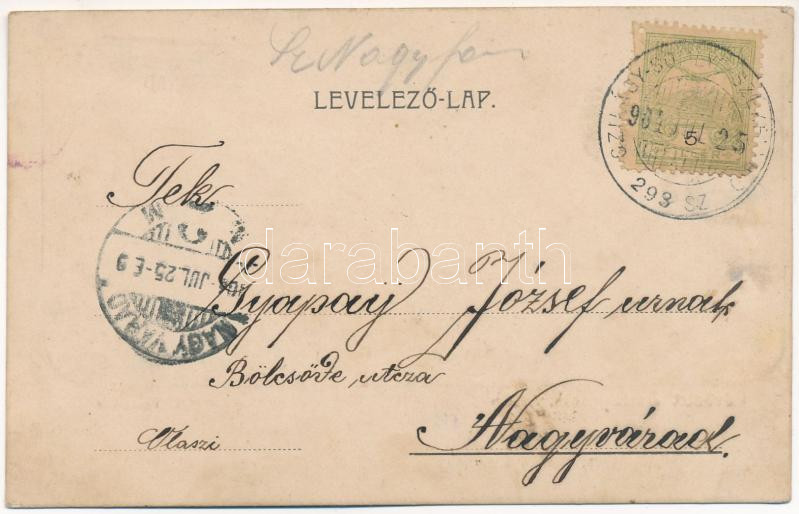 Sz Nagyfa
LEVELEZŐ-LAP.
5
901 JUL 25
293 SZ
Tek.
JUL.25-E.9
NAGYVÁRAD
darabanth
Gyapaÿ József urnak
Bölcsőde utcza
Olaszi
Nagyvárad.